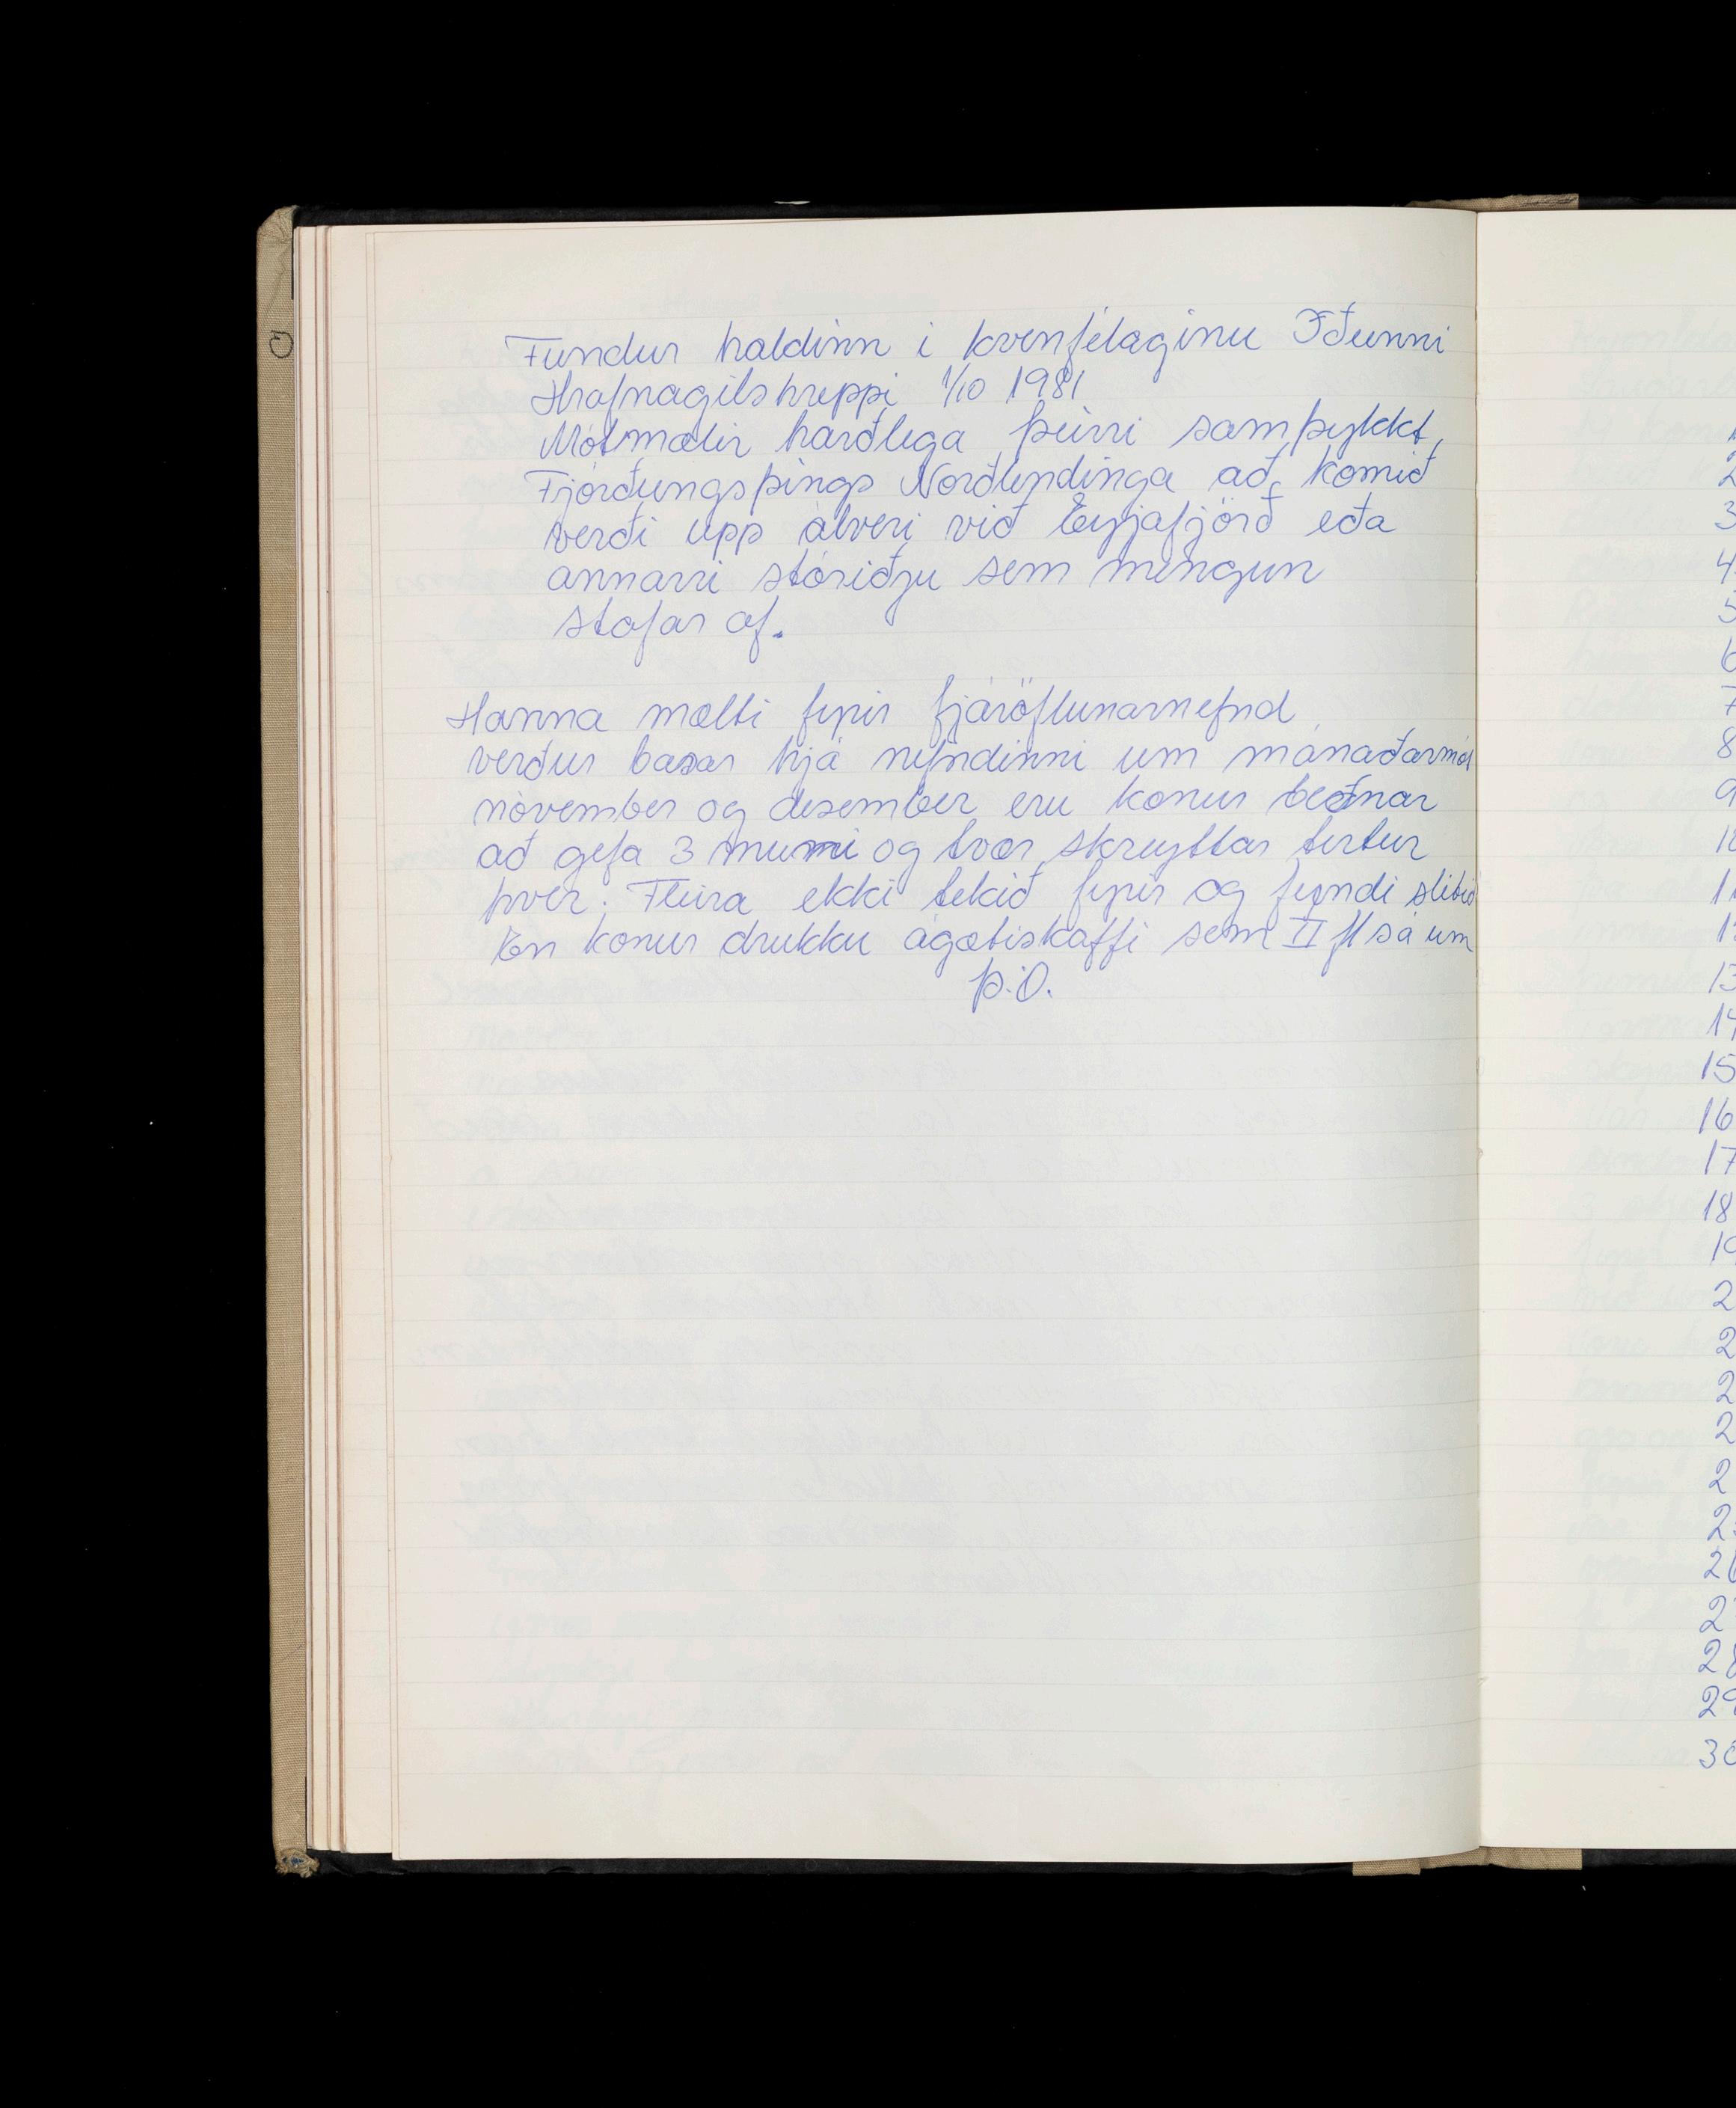 Fundur haldinn í kvenfélaginu Iðunni
Hrafnagilshreppi 1/10 1981
Mótmælir harðlega þeirri samþykkt,
Fjórðungsþings Norðlendinga að komið
verði upp álveri við Eyjafjörð eða
annarri stóriðju sem mengun
stafar af.
Hanna mælti fyrir fjáröflunarnefnd
verður basar hjá nefndinni um mánaðarmót
nóvember og desember eru konur beðnar
að gefa 3 muni og tvær skreyttar tertur
hver. Fleira ekki tekið fyrir og fundi slitið
En konur drukku ágætiskaffi sem II fl sá um
Þ.O.
3
4
5
6
7
8
9
13
14
15
16
17
18
19
2
2
2
2
2
2
26
2
28
29
30